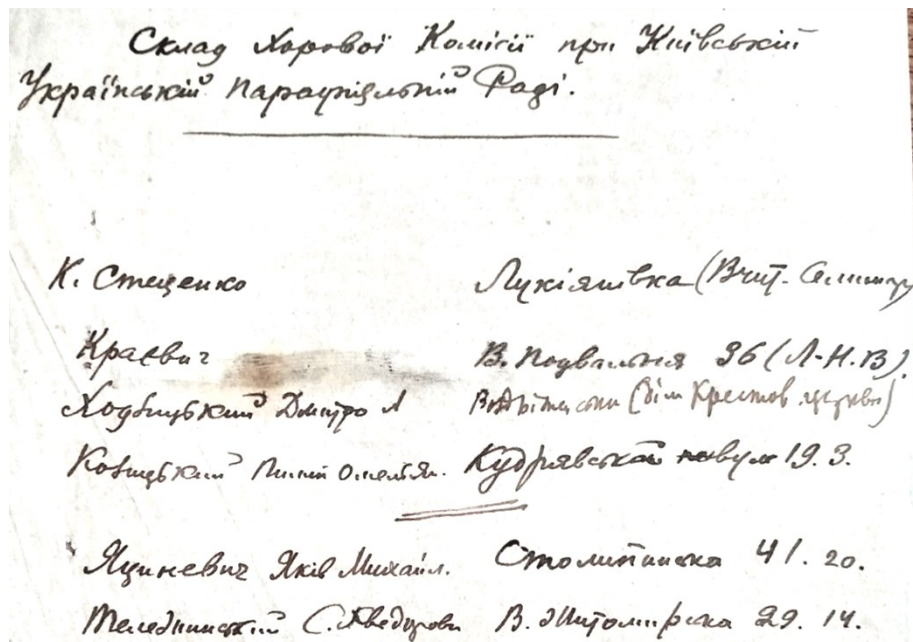 Склад Хорової Комісії при Київській
Українській Парафіяльній Раді.
К. Стеценко Лукіянівка (Вчит. Семинар
Краевич В. Подвальна 36 (Л-Н.В).
Ходзіцький Дмитро Л (дім Крестов. церкви)
Ковицький Омелян. Кудрявська вул 19. 3.
Яциневич Яків Михайл. Столипинська 41. 20.
С. В. Житомирска 29. 14.